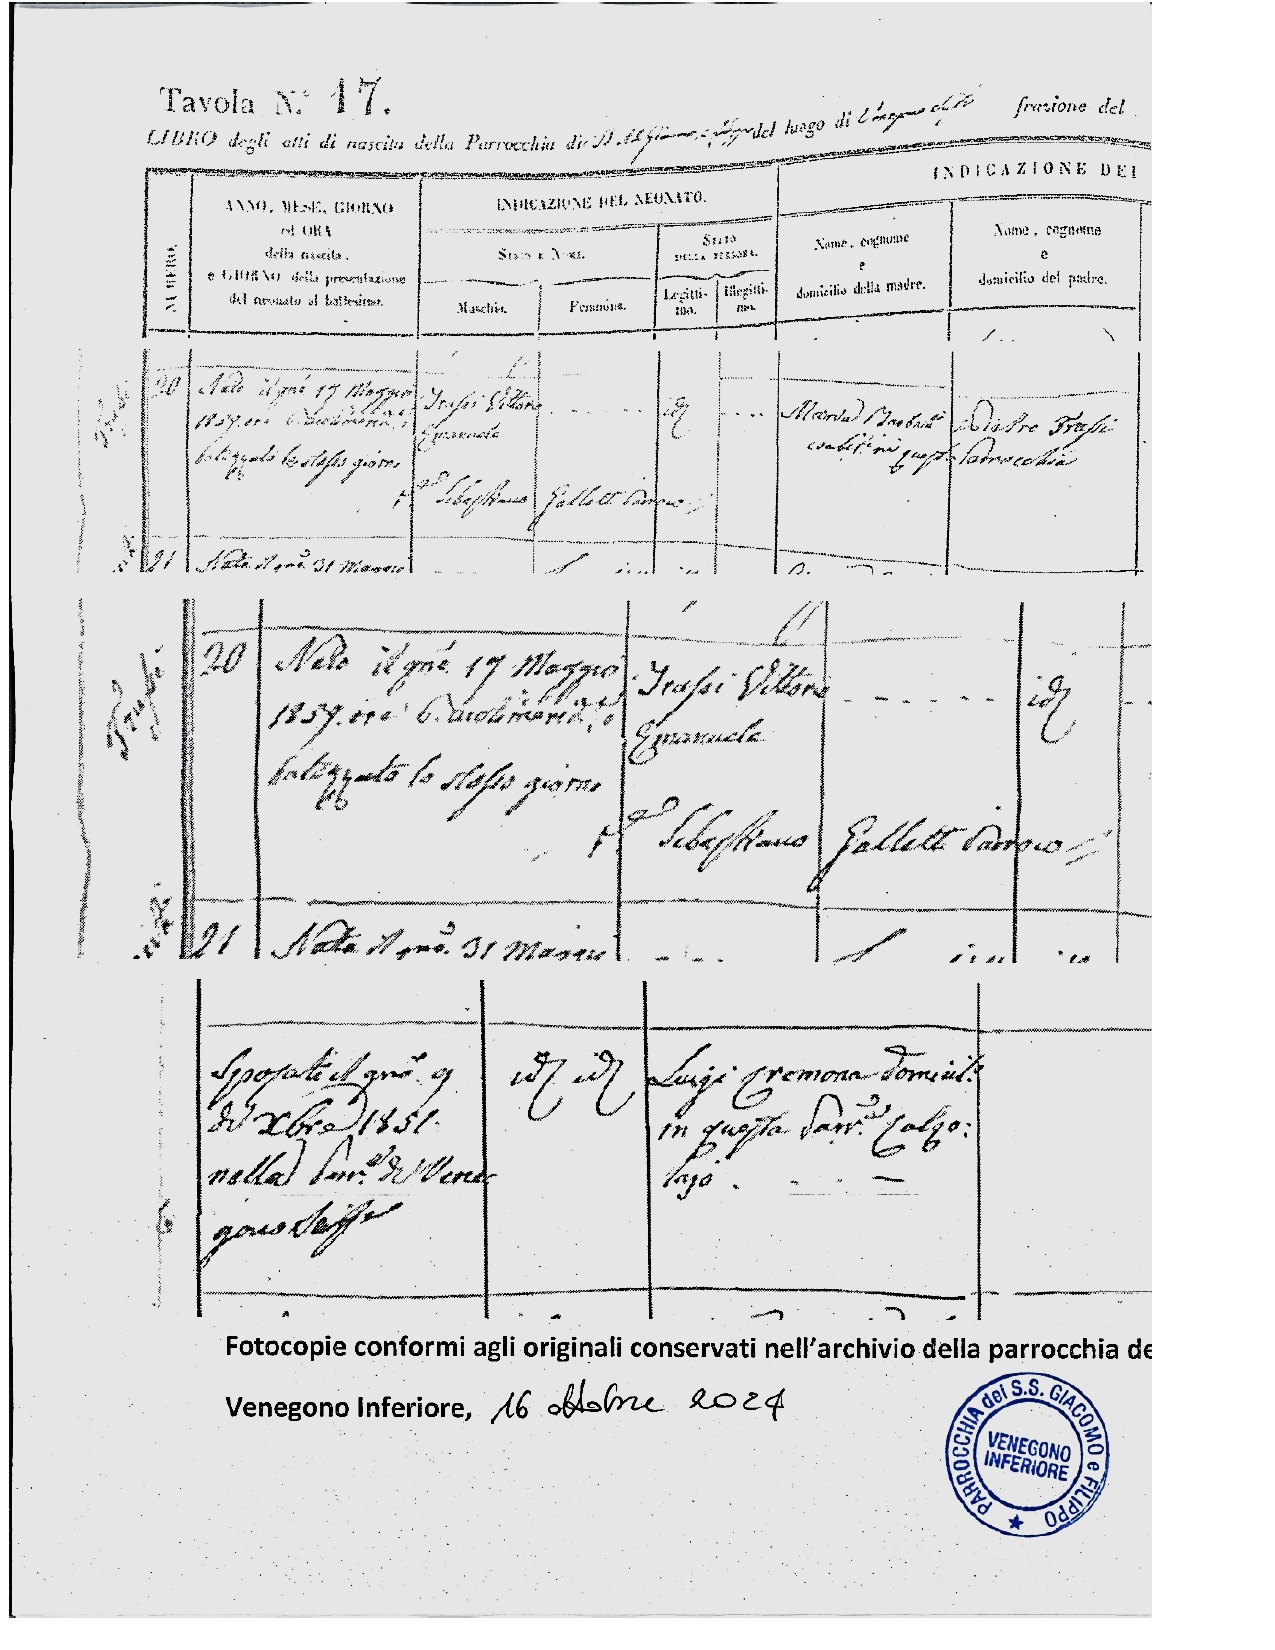 Tavola N.° 17.
LIBRO degli atti di nascita della Parrocchia di del luogo di frazione del
NUMERO.
ANNO, MESE, GIORNO
ed ORA
della nascita,
e GIORNO della presentazione
del neonato al battesimo.
INDICAZIONE DEL NEONATO.
Stato e Nome.
Maschio.
Femmina.
Stato
della persona.
Legitti-
mo.
Illegitti-
mo.
INDICAZIONE DEI
Nome, cognome
e
domicilio della madre.
Nome, cognome
e
domicilio del padre.
Frassi
20
Nato il gno. 17 Maggio
1859. ore 6.
batezzato lo stesso giorno
Frassi Vittorio
Emanuele
id
Pietro Frassi
Parrocchia
Sebastiano Galletti Parroco
21
Nata il gno. 31 Maggio
Frassi
20
Nato il gno. 17 Maggio
1859. ore 6.
batezzato lo stesso giorno
Frassi Vittorio
Emanuele
id
Sebastiano Galletti Parroco
21
Nata il gno. 31 Maggio
Sposati il gno. 9
di Xbre 1851.
nella Parr.a di Vene
gono
id id
Luigi Cremona domicil.
in questa Parr.a Calzo:
lajo.
Fotocopie conformi agli originali conservati nell'archivio della parrocchia de
Venegono Inferiore, 16 ottobre 2024
PARROCCHIA dei S.S. GIACOMO e FILIPPO
VENEGONO
INFERIORE